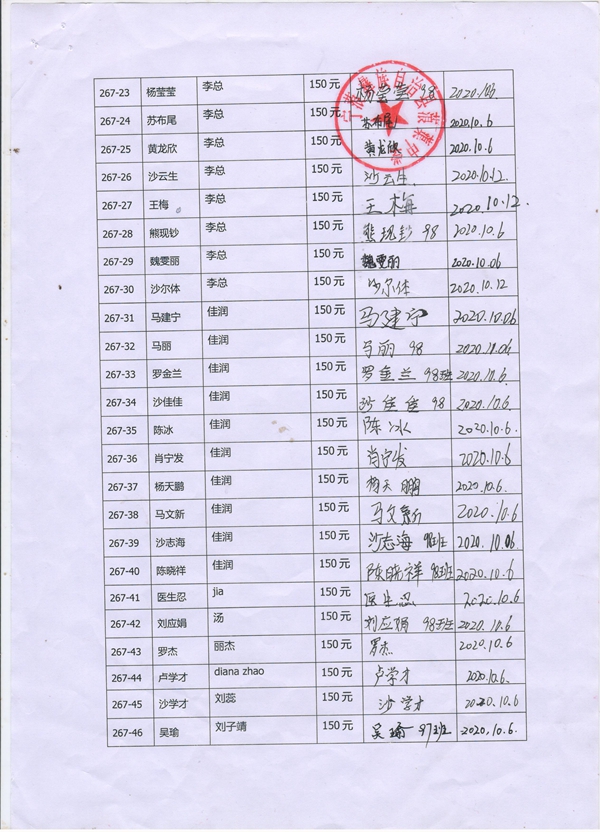 267-23 杨莹莹 李总 150元 杨莹莹 98 2020.10.6
267-24 苏布尾 李总 150元 苏布尾 2020.10.6
267-25 黄龙欣 李总 150元 黄龙欣 2020.10.6
267-26 沙云生 李总 150元 沙云生 2020.10.12
267-27 王梅 李总 150元 王梅 2020.10.12
267-28 熊现钞 李总 150元 熊现钞 98 2020.10.6
267-29 魏雯丽 李总 150元 魏雯丽 2020.10.06
267-30 沙尔体 李总 150元 沙尔体 2020.10.12
267-31 马建宁 佳润 150元 马建宁 2020.10.06
267-32 马丽 佳润 150元 马丽 98 2020.10.06
267-33 罗金兰 佳润 150元 罗金兰 98班 2020.10.6
267-34 沙佳佳 佳润 150元 沙佳佳 98 2020.10.6
267-35 陈冰 佳润 150元 陈冰 2020.10.6
267-36 肖宁发 佳润 150元 肖宁发 2020.10.6
267-37 杨天鹏 佳润 150元 杨天鹏 2020.10.6
267-38 马文新 佳润 150元 马文新 2020.10.6
267-39 沙志海 佳润 150元 沙志海 98班 2020.10.06
267-40 陈晓祥 佳润 150元 陈晓祥 98班 2020.10.6
267-41 医生忍 jia 150元 医生忍 2020.10.6
267-42 刘应娟 汤 150元 刘应娟 98班 2020.10.6
267-43 罗杰 丽杰 150元 罗杰 2020.10.6
267-44 卢学才 diana zhao 150元 卢学才 2020.10.6.
267-45 沙学才 刘蕊 150元 沙学才 2020.10.6
267-46 吴瑜 刘子靖 150元 吴瑜 97班 2020.10.6.